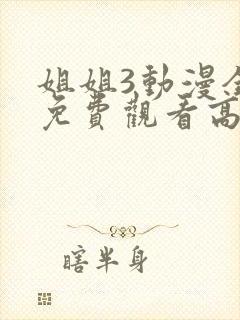 姐姐3動漫全
免費觀看高
瞎半身